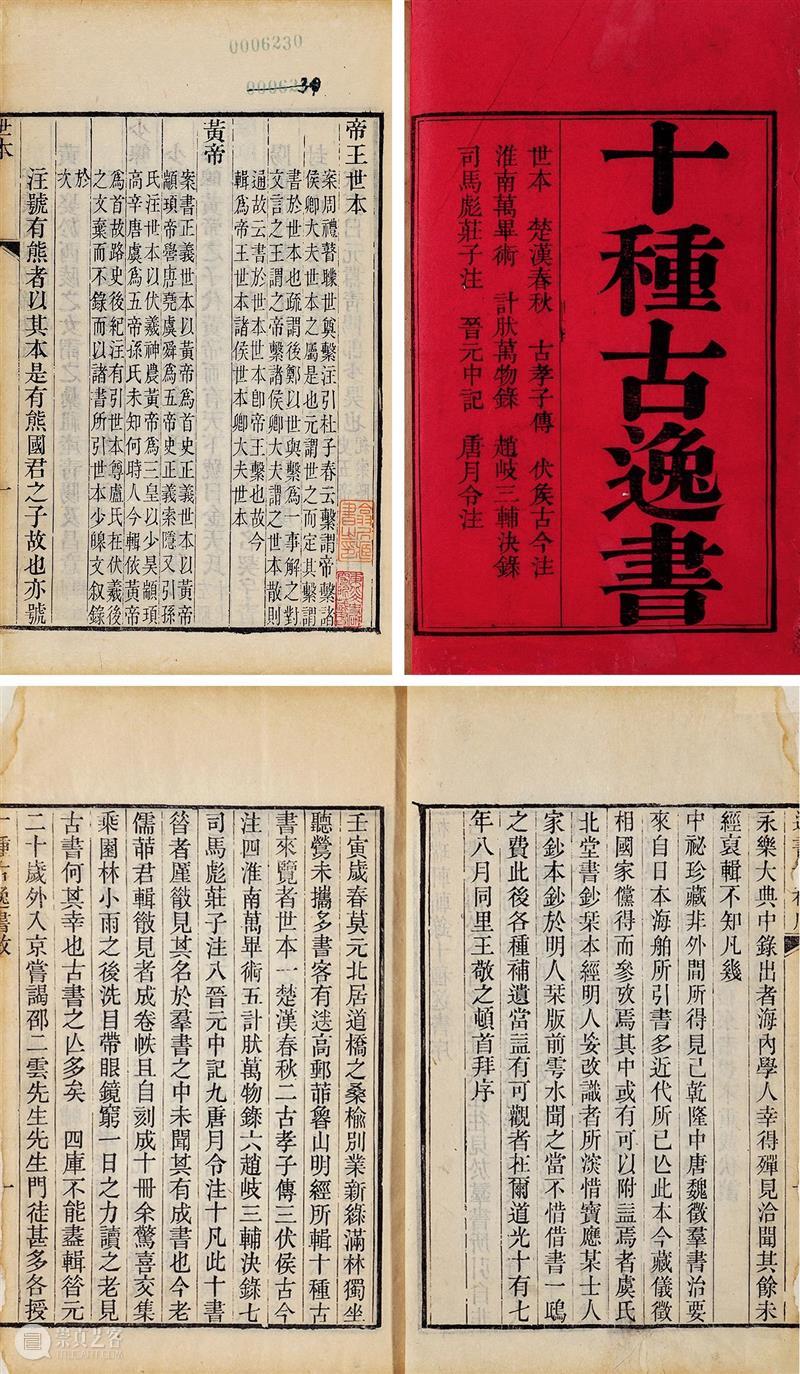 0006230
39
帝王世本
案周禮瞽矇世奠繫注引杜子春云繫謂帝繫諸
侯卿大夫世本之屬是也元謂世之而定其繫謂
書於世本也疏謂後鄭以世與繫爲一事解之對
文言之王謂之帝繫諸侯卿大夫謂之世本散則
通故云書於世本世本卽帝王繫也故今
輯爲帝王世本諸侯世本卿大夫世本
黃帝
案書正義世本以黃帝爲首史正義世本以黃帝
顓頊帝嚳唐堯虞舜爲五帝史正義索隱又引孫
氏注世本以伏羲神農黃帝爲三皇以少昊顓頊
高辛唐虞爲五帝孫氏未知何時人今輯依黃帝
爲首故路史後紀注有引世本尊盧氏在伏羲後
之文棄而不錄而以諸書所引世本少皞文叙錄
於
次
注號有熊者以其本是有熊國君之子故也亦號
世本
一
十種古逸書
世本 楚漢春秋 古孝子傳 伏矦古今注
淮南萬畢術 計肰萬物錄 趙岐三輔決錄
司馬彪莊子注 晉元中記 唐月令注
永樂大典中錄出者海內學人幸得殫見洽聞其餘未
經裒輯不知凡幾
中祕珍藏非外間所得見已乾隆中唐魏徵羣書治要
來自日本海舶所引書多近代所已亾此本今藏儀徵
相國家儻得而參攷焉其中或有可以附益焉者虞氏
北堂書鈔栞本經明人妄改識者所深惜寶應某士人
家鈔本鈔於明人栞版前雩水聞之當不惜借書一鴟
之費此後各種補遺當益有可觀者在爾道光十有七
年八月同里王敬之頓首拜序
壬寅歲春莫元北居道橋之桑榆別業新綠滿林獨坐
聽鶯未攜多書客有送高郵茆魯山明經所輯十種古
書來覽者世本一楚漢春秋二古孝子傳三伏侯古今
注四淮南萬畢術五計肰萬物錄六趙岐三輔決錄七
司馬彪莊子注八晉元中記九唐月令注十凡此十書
昝者厪散見其名於羣書之中未聞其有成書也今老
儒茆君輯散見者成卷帙且自刻成十冊余驚喜交集
乘園林小雨之後洗目帶眼鏡窮一日之力讀之老見
古書何其幸也古書之亾多矣 四庫不能盡輯昝元
二十歲外入京嘗謁邵二雲先生先生門徒甚多各授
十種古逸書敘
一
崇真艺客